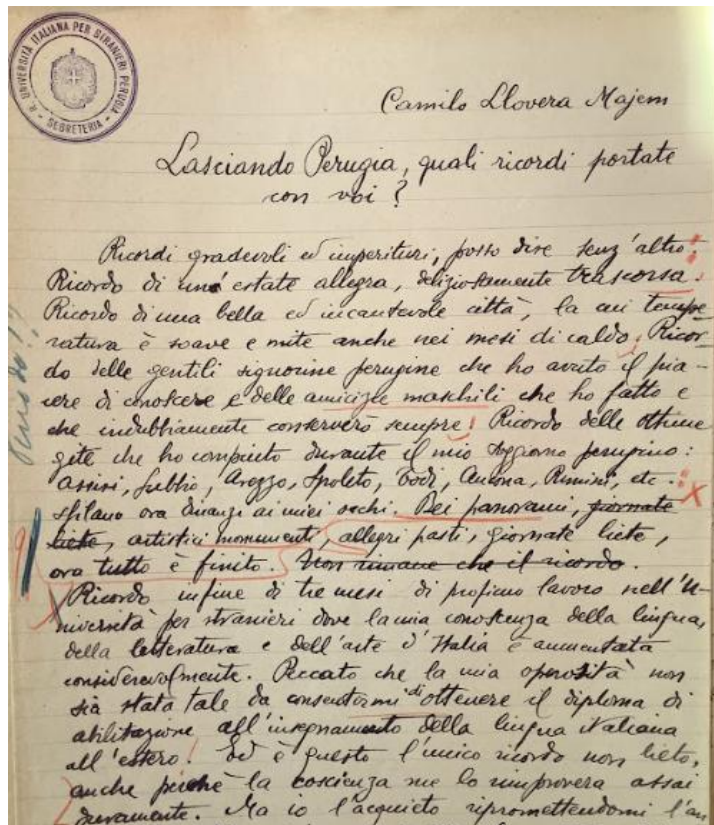 R. UNIVERSITÀ ITALIANA PER STRANIERI PERUGIA
- SEGRETERIA -
Camilo Llovera Majem
Lasciando Perugia, quali ricordi portate
con voi?
Ricordi gradevoli ed imperituri, posso dire senz'altro:
Ricordo di una estate allegra, deliziosamente trascorsa.
Ricordo di una bella ed incantevole città, la cui tempe
ratura è soave e mite anche nei mesi di caldo; Ricor-
do delle gentili signorine perugine che ho avuto il pia-
cere di conoscere e delle amicizie maschili che ho fatto e
che indubbiamente conserverò sempre! Ricordo delle ottime
gite che ho compiuto durante il mio soggiorno perugino:
Assisi, Gubbio, Arezzo, Spoleto, Todi, Ancona, Rimini, etc.
sfilano ora dinanzi ai miei occhi. Bei panorami, giornate
liete, artistici monumenti, allegri pasti, giornate liete,
ora tutto è finito. Non rimane che il ricordo.
Ricordo infine di tre mesi di proficuo lavoro nell'U-
niversità per stranieri dove la mia conoscenza della lingua,
della letteratura e dell'arte d'Italia è aumentata
considerevolmente. Peccato che la mia operosità non
sia stata tale da consentirmi di ottenere il diploma di
abilitazione all'insegnamento della lingua italiana
all'estero! Ed è questo l'unico ricordo non lieto,
anche perchè la coscienza me lo rimprovera assai
duramente. Ma io l'acquieto ripromettendomi l'an